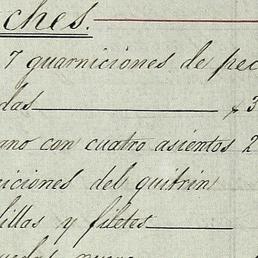 ches.
7 guarniciones de pec
das $3
ano con cuatro asientos 2
iciones del quitrin
illas y filetes